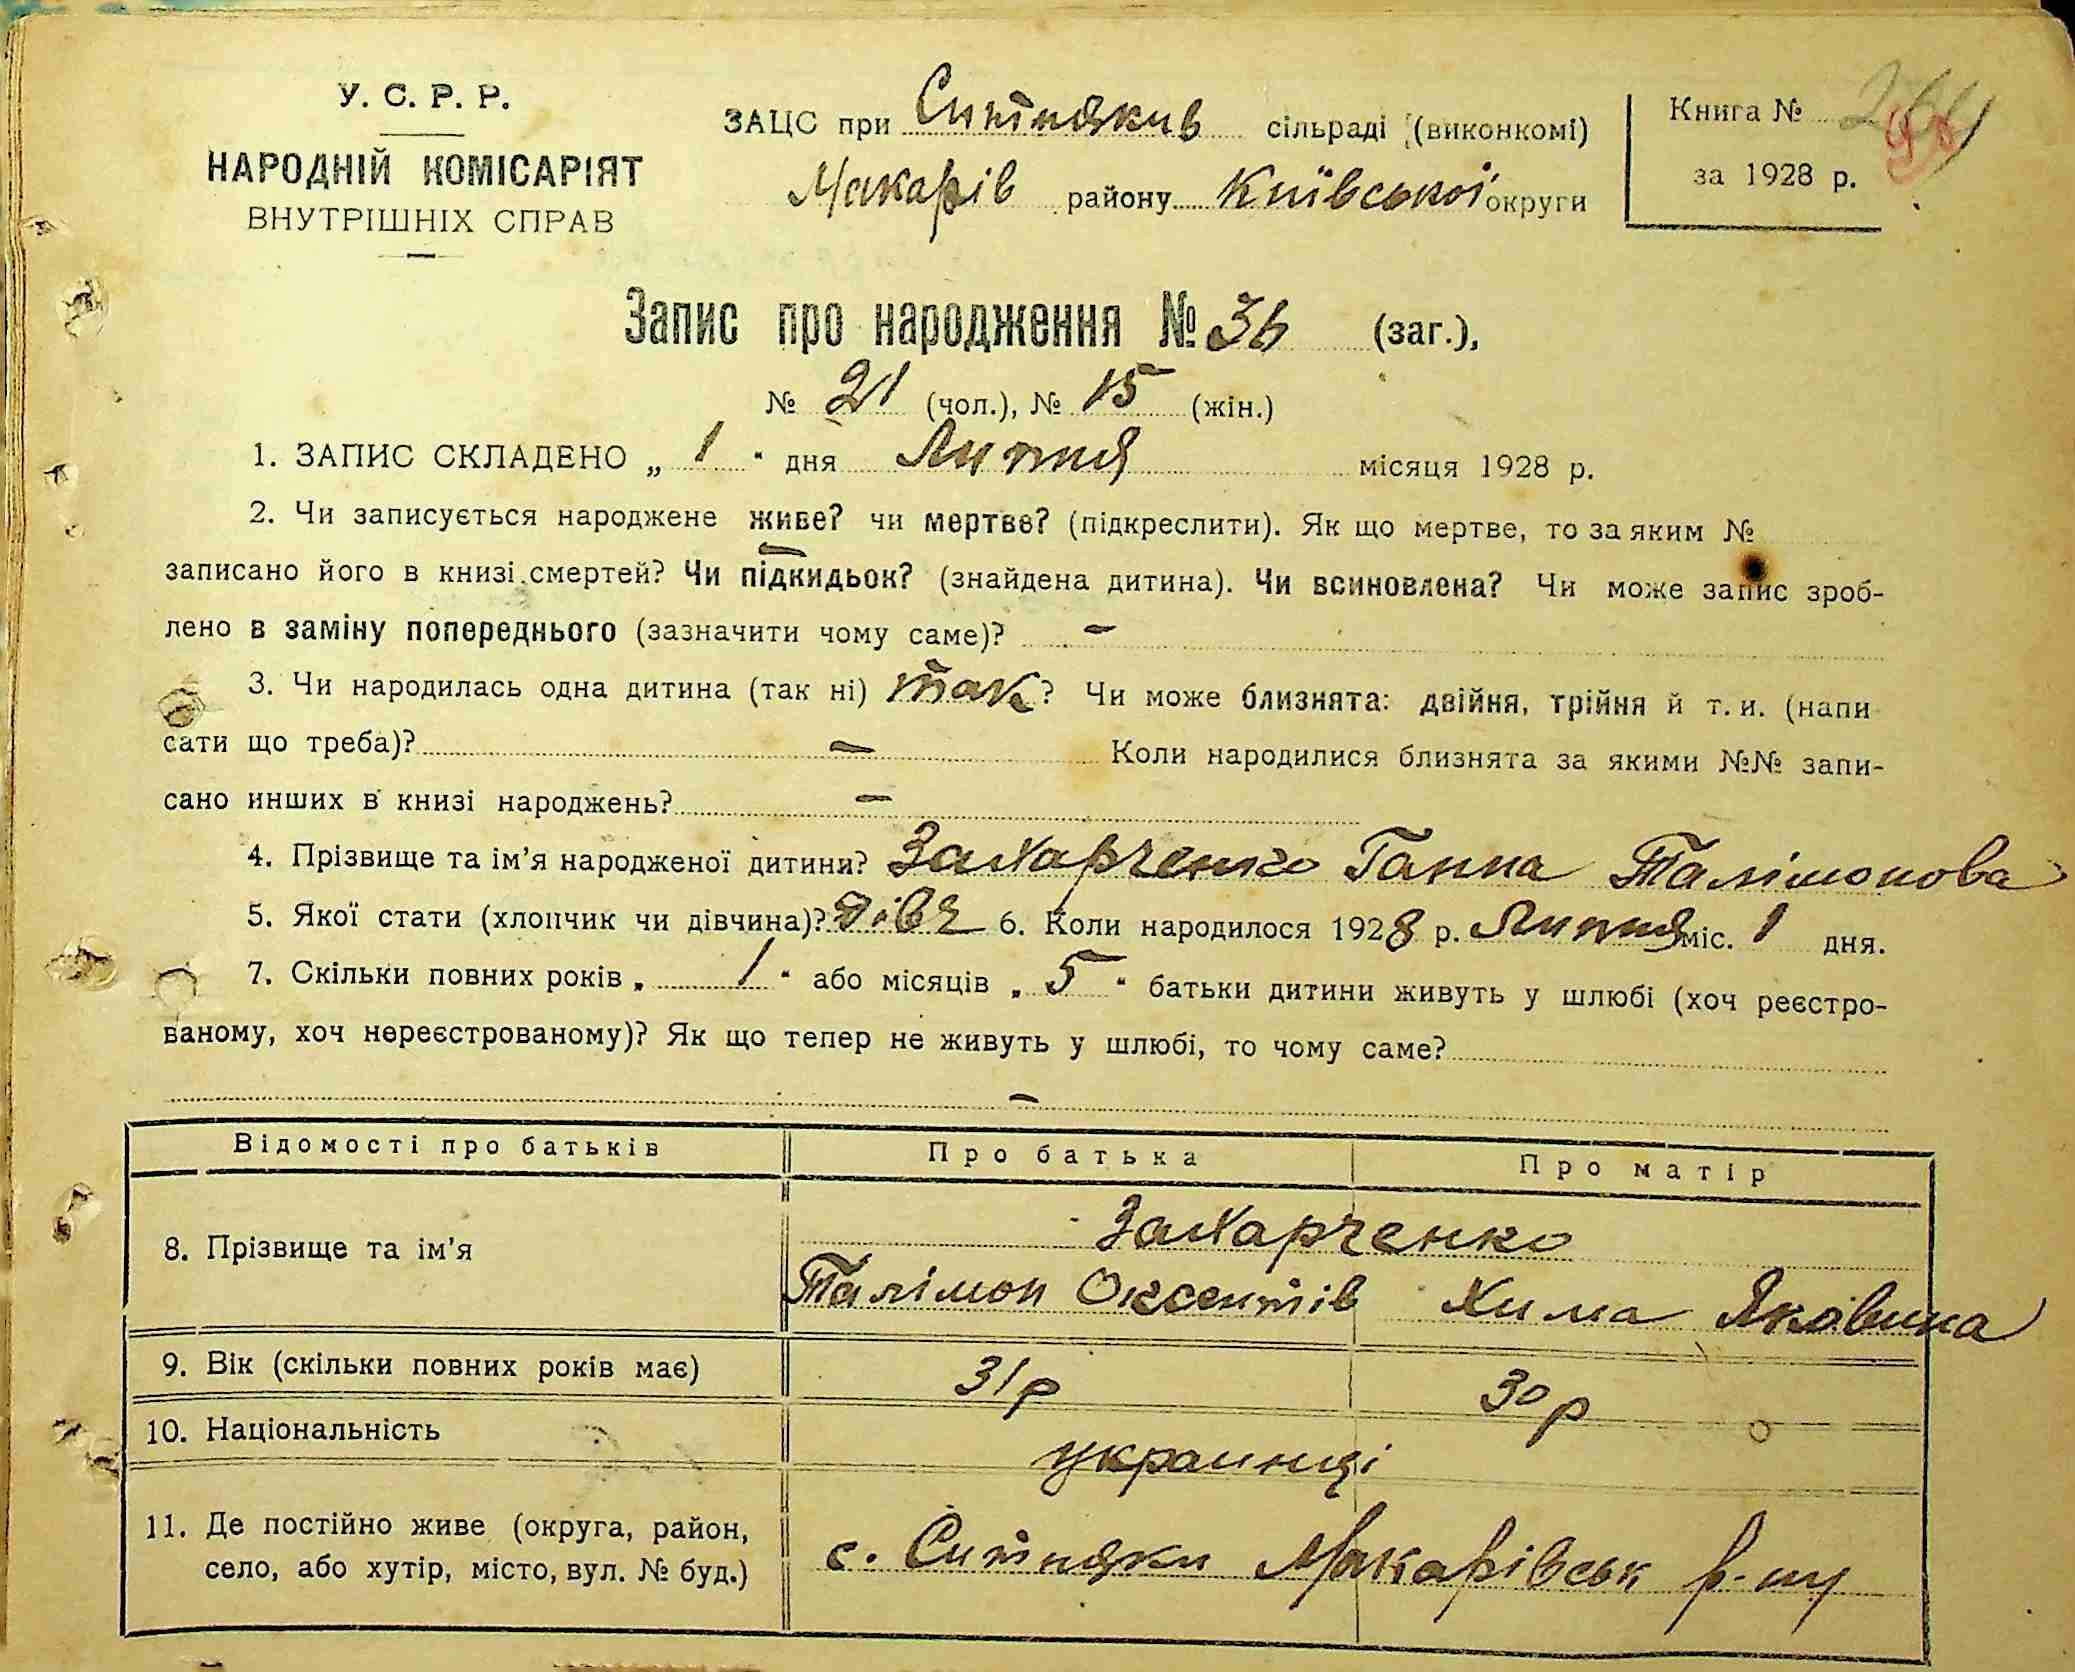 У. С. Р. Р.
НАРОДНІЙ КОМІСАРІЯТ
ВНУТРІШНІХ СПРАВ
ЗАЦС при Ситняків сільраді (виконкомі)
Макарів району Київської округи
Книга №
за 1928 р.
Запис про народження № 36 (заг.),
№ 21 (чол.), № 15 (жін.)
1. ЗАПИС СКЛАДЕНО „ 1 “ дня Липня місяця 1928 р.
2. Чи записується народжене живе? чи мертве? (підкреслити). Як що мертве, то за яким №
записано його в книзі смертей? Чи підкидьок? (знайдена дитина). Чи всиновлена? Чи може запис зроб-
лено в заміну попереднього (зазначити чому саме)? –
3. Чи народилась одна дитина (так ні) так? Чи може близнята: двійня, трійня й т. и. (напи
сати що треба)? – Коли народилися близнята за якими №№ запи-
сано инших в книзі народжень? –
4. Прізвище та ім’я народженої дитини? Захарченко Ганна Талімонова
5. Якої стати (хлопчик чи дівчина)? дівч 6. Коли народилося 1928 р. Липня міс. 1 дня.
7. Скільки повних років „ 1 “ або місяців „ 5 “ батьки дитини живуть у шлюбі (хоч реєстро-
ваному, хоч нереєстрованому)? Як що тепер не живуть у шлюбі, то чому саме?
–
Відомості про батьків Про батька Про матір
8. Прізвище та ім’я Захарченко
Талімон Оксентів Хима Яковина
9. Вік (скільки повних років має) 31 р 30 р
10. Національність украинці
11. Де постійно живе (округа, район,
село, або хутір, місто, вул. № буд.) с. Ситняки Макарівськ р-ну